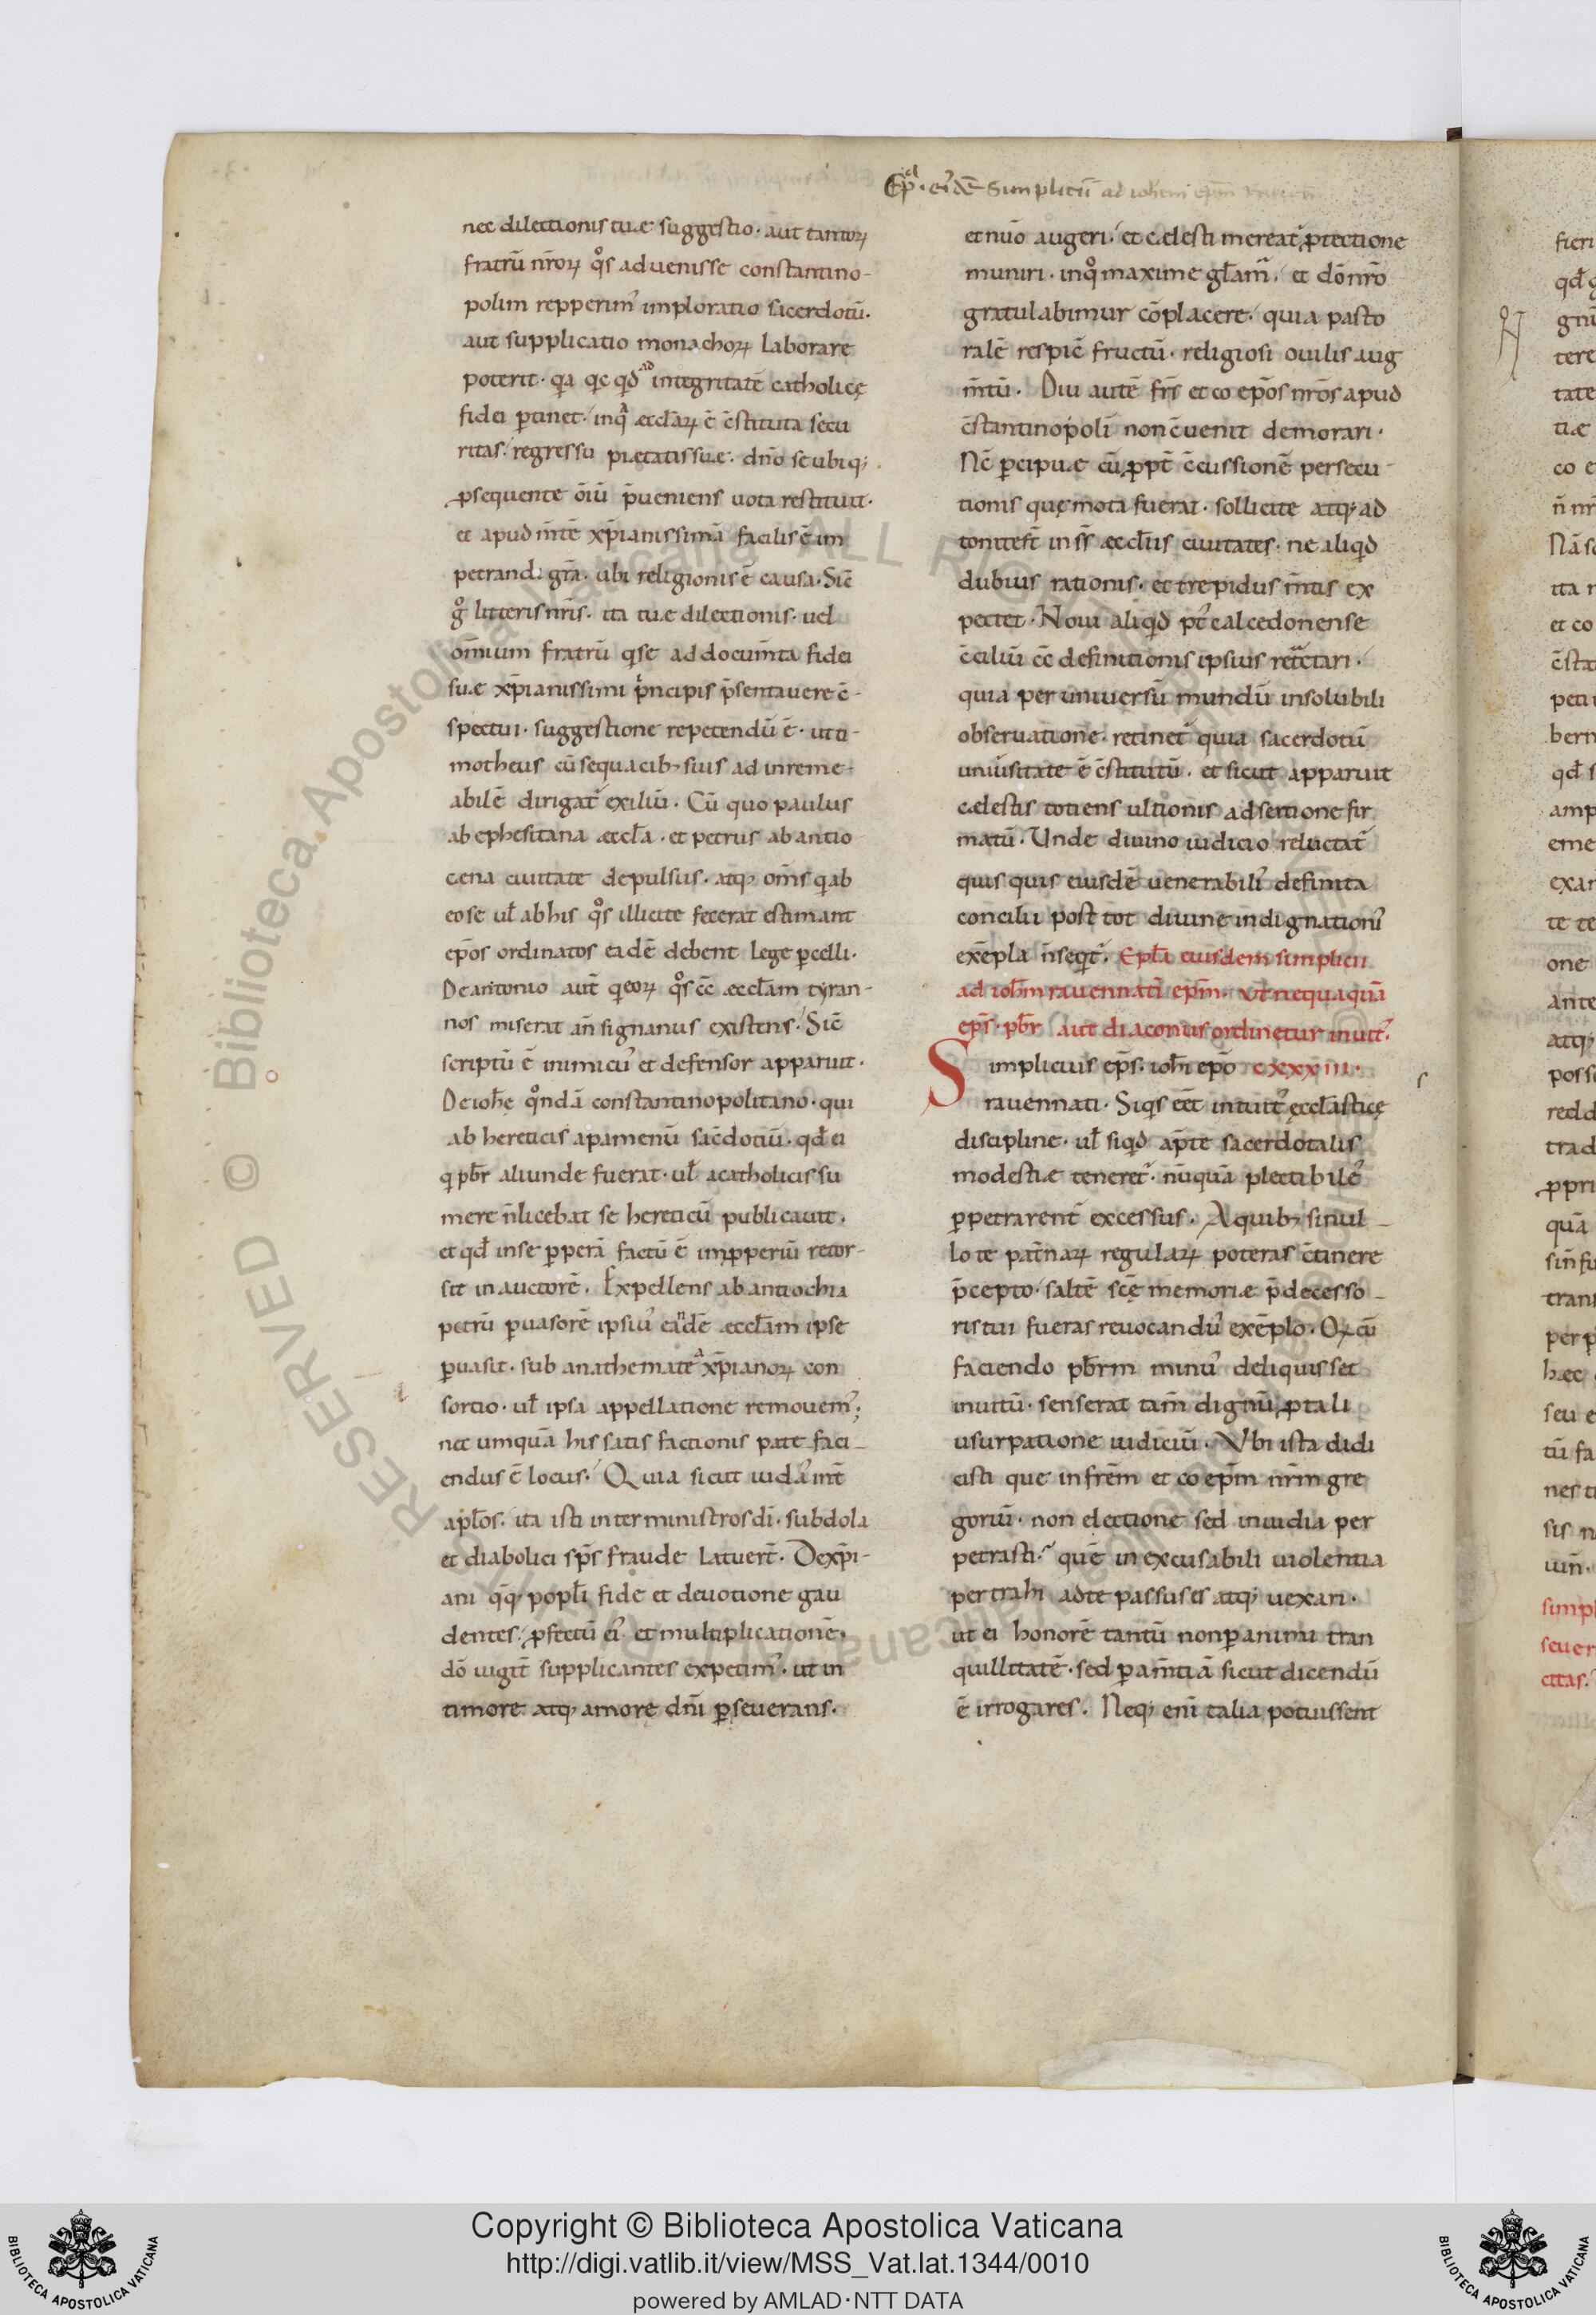 Ep̄ł · ei͛dē Simplicii ad ioh̄em ep̄m
nec dilectionis tuæ suggestio · aut tantoꝝ
fratrū nr̄oꝝ qͦs aduenisse constantino-
polim repperim᾿ imploratio sacerdotū ·
aut supplicatio monachoꝝ laborare
poterit · q̨a qc̨ qd̄ ad integritatē catholicę
fidei ꝑtinet · inqͣ æccl̄aꝝ ē c̄stituta secu
ritas · regressu pietatis suæ · dn̄o se ubiq;
ꝓsequente om̄iū p̄ueniens uota restituit ·
et apud m̄tē xp̄ianissimā facilis ē im
petrandi gr̄a · ubi religionis ē causa · Sic̄
gͦ litteris nr̄is · ita tuæ dilectionis · uel
om̄ium fratrū q̨ se ad docum̄ta fidei
suæ xp̄ianissimi pͥncipis p̄sentauere c̄-
spectui · suggestione repetendū ē · ut ti-
motheus cū sequacib; suis ad inreme-
abilē dirigat᾿ exiliū · Cū quo paulus
ab ephesitana æccl̄a · et petrus ab antio
cena ciuitate depulsus · atq; om̄s q̨ ab
eo se ul̄ ab his qͦs illicite fecerat estimant
ep̄os ordinatos eidē debent lege ꝑcelli ·
De antonio aut̄ q̨ eoꝝ qͦs c̄c æccl̄am tyran-
nos miserat an̄signanus existens · Sic̄
scriptū ē inimicu᾿ et defensor apparuit ·
De ioh̄e qͦndā constantinopolitano · qui
ab hereticis apamenū sac̄dotiū · qd̄ ei
q̨ pb̄r aliunde fuerat · ul̄ a catholicis su
mere n̄licebat se hereticū publicauit ·
et qd̄ in se ꝑperā factū ē imꝓperiū retor-
sit in auctorē · Expellens ab antiochia
petrū ꝑuasorē ipsiu᾿ eandē æccl̄am ipse
ꝑuasit · sub anathemate a xp̄ianoꝝ con
sortio · ul̄ ipsa appellatione remouem᾿;
nec umquā his satisfactionis pate faci-
endus ē locus · Quia sicut iudas int̄
apl̄os · ita isti inter ministros dī · subdola
et diabolici sp̄s fraude latuert̄ · De xp̄i-
ani qq̨; popl̄i fide et deuotione gau
dentes · ꝓfectū ei᾿ et multiplicationē ·
dō iugit̄ supplicantes expetim᾿ · ut in
timore atq; amore dn̄i ꝑseuerans ·
et nūo augeri · et cælesti mereat᾿ ꝓtectione
muniri · inqͦ maxime gl̄am · et dō nr̄o
gratulabimur cōplacere · quia pasto
ralē respic̄ fructū · religiosi ouilis aug
m̄tū · Diu autē fr̄s et co ep̄os nr̄os apud
c̄stantinopoli non c̄uenit demorari ·
Nc̄ ꝑcipuæ cū ꝓpt̄ c̄cussionē persecu-
tionis quę mota fuerat · sollicite atq; ad
tonitest̄ in ss̄ æccl̄iis ciuitates · ne aliq̨d
dubius rationis · et trepidus m̄tis ex
pectet · Noui aliq̨d pt᾿ calcedonense
c̄ciliū c̄c definitionis ipsius retctari ·
quia per uniuersū mundū insolubili
obseruatione · retinet᾿ quia sacerdotū
uniūsitate ē c̄stitutū · et sicut apparuit
cælestis totiens ultionis adsertione fir
matū · Unde diuino iudicio reluctat᾿
quis quis eiusdē uenerabili᾿ definita
concilii post tot diuine indignationi᾿
exēpla n̄ seqt᾿ · Epl̄a eiusdem simplicii
ad ioh̄m rauennatī ep̄m · Vt nequaquā
ep̄s · pb̄r aut diaconus ordinetur inuit᾿ ·
Simplicius ep̄s · ioh̄i ep̄o cxxxiii ·
rauennati · Siq̨s eēt intuit᾿ ęccl̄asticę
discipline · ul̄ siq̨d ap̄te sacerdotalis
modestiæ teneret᾿ · nūquā plectibile᾿
ꝑpetrarent᾿ excessus · A quib; sinul-
lo te pat̄naꝝ regulaꝝ poteras c̄tinere
p̄cepto · saltē scę̄ memoriæ p̄decesso-
ris tui fueras reuocandu᾿ exēplo · Qꝝ cū
faciendo pb̄rm minu᾿ deliquisset
inuitū · senserat tam̄ dignū ꝓ tali
usurpatione iudiciū · Vbi ista didi
cisti que in frēm et co ep̄m nr̄m gre
goriū · non electione sed inuidia per
petrasti · quē in excusabili uiolentia
pertrahi ad te passus es atq; uexari ·
ut ei honorē tantū non ꝑ animi tran
quillitatē · sed ꝑ am̄tiā sicut dicendū
ē irrogares · Neq; eni᾿ talia potuissent
Copyright © Biblioteca Apostolica Vaticana
http://digi.vatlib.it/view/MSS_Vat.lat.1344/0010
powered by AMLAD·NTT DATA